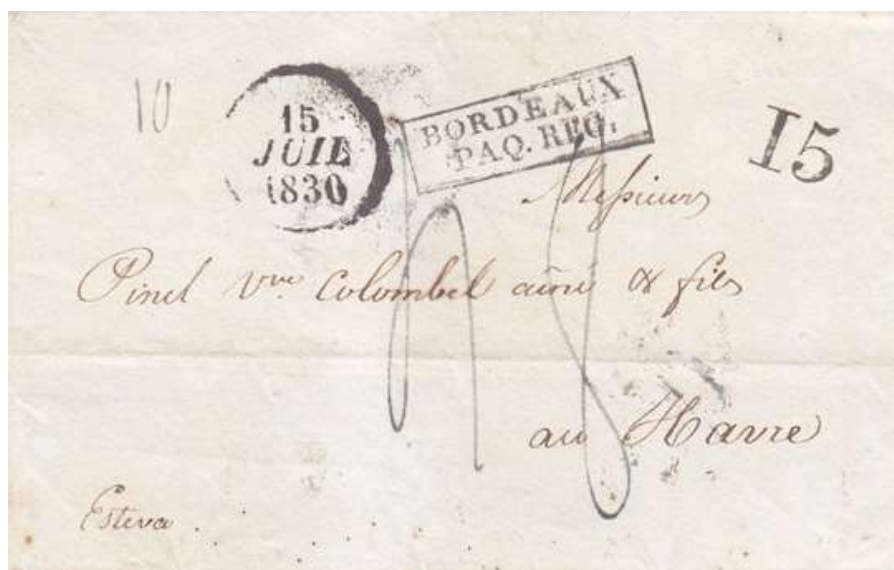 10
15
JUIL
1830
BORDEAUX
PAQ. REG.
15
Messieurs
Pinel Vve. Colombel aîné & fils
au Havre
Esteva